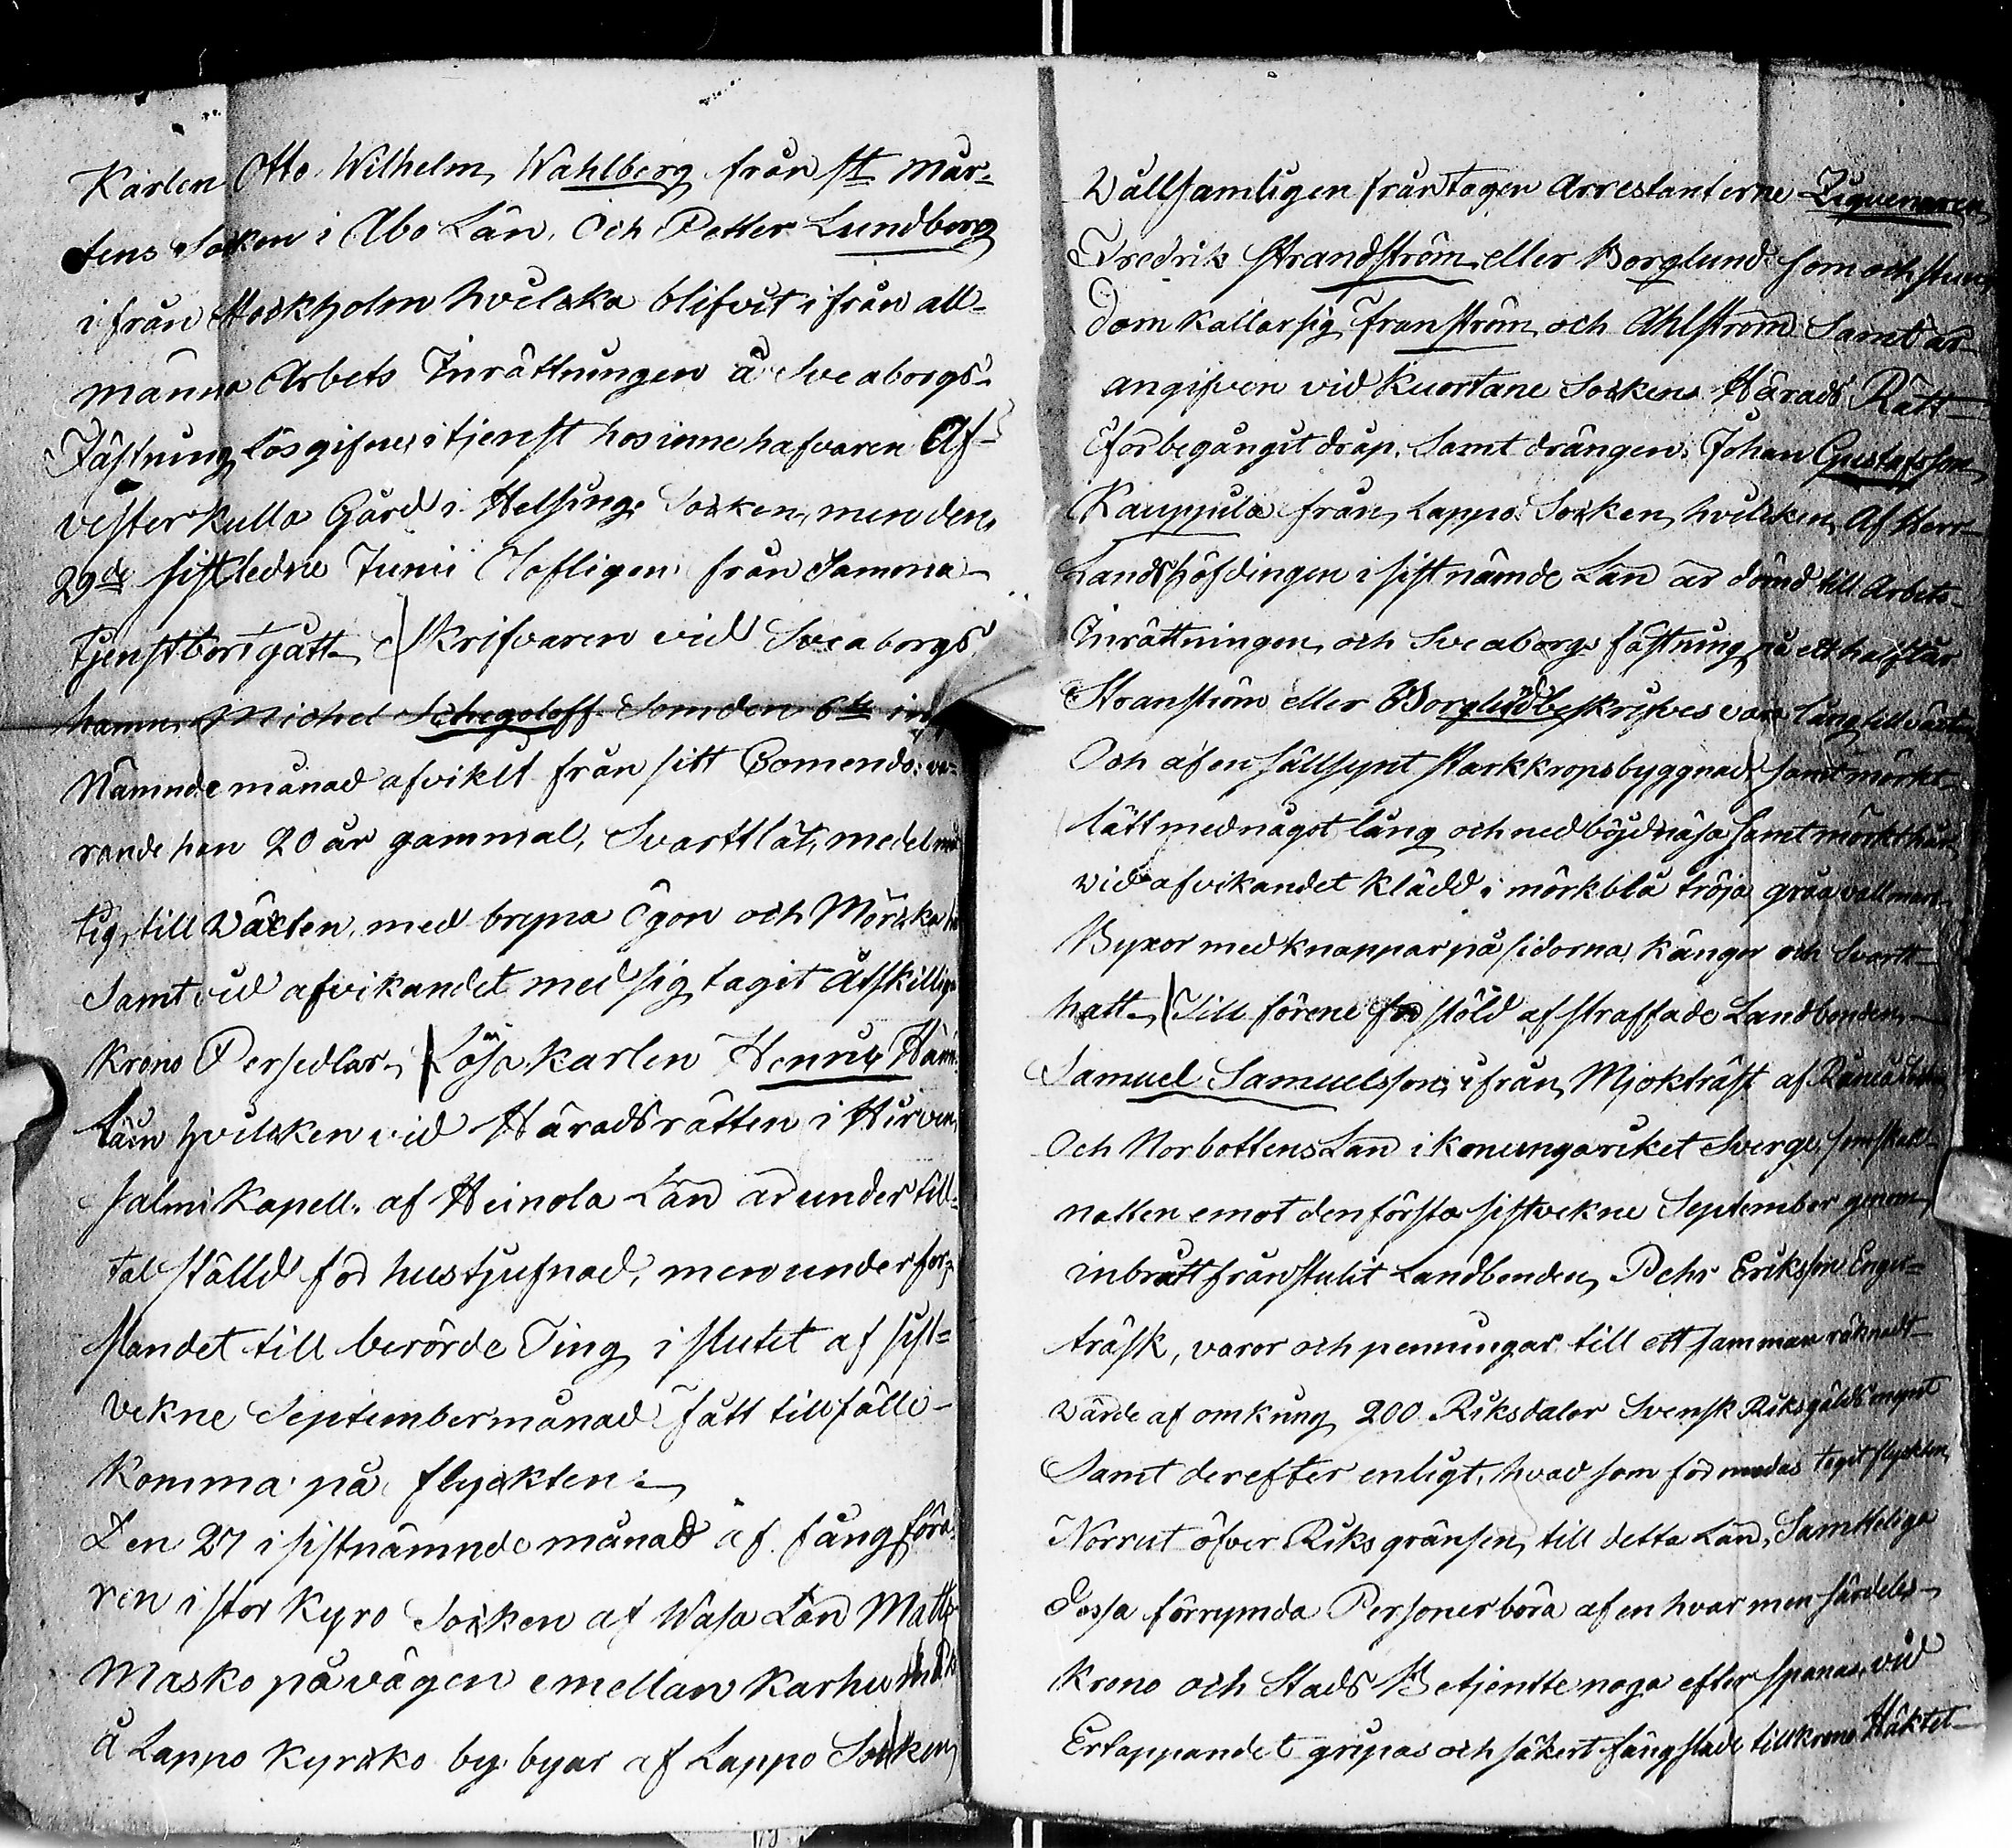 Karlen Otto Wilhelm Wahlberg från St Mår=
tens Socken i Åbo Län, Och Petter Lundberg
ifrån Stockholm hvilcka blifvit ifrån all-
männa Arbets Inrättningen å Sveaborgs
Fästning lösgifne i tjenst hos innehafvaren Af
vesterkulla Gård i Helsinge Socken, men den
29de sistledne Junii Olofligen från Samma
tjenst bortgått, Skrifvaren vid Sveaborgs
hamn Michel Schegoloff Som den 6te in
Nämnde månad afvikit från sitt Comendo: va=
rande han 20 år gammal, Svarttlät, medelmå
tig till Växten, med bryna Ögon och Mörcka
Samt vid afvikandet med sig tagit åtskillige
krono Persedlar, Lösa karlen Henric Häm
läin hvilcken vid Häradsrätten i Hirven
salmi Kapell af Heinola Län är under till=
tal ställd för hustjufnad, men under for=
slandet till berörde Ting i slutet af sist=
vekne September månad fått tillfälle
Komma på flyckten.
Den 27 i sistnämnde månad af fångföra
ren i Stor Kyro Socken af Wasa Län Matts
Masko på vägen emellan Karhu
å Lappo Kyrcko by byar af Lappo Socken
Våldsamligen från tagen Arrestanterne Ziguenaren
Fredrik Strandström eller Borglund som och
dom kallar sig Franström och Ahlström Samt är
angifven vid Kuortane Socken Härads Rätt
för begångit dråp. Samt drängen Johan Gustafsson
Kauppila från Lappo Socken hvilcken Af Herr
Landshöfdingen i sistnämde Län är dömd till Arbets
Inrättningen och Sveaborgs fästning på ett halft år
Stranström eller Borglund beskrifves vara lång till växten
Och af en sällsynt stark kropsbyggnad samt mörkt
lätt med något lång och nedböjd näsa samt mörkt hår
vid afvikandet klädd i mörkblå tröja gråa vallmars
Byxor med knappar på sidorna, kängor och Svartt
hatt, Till förene för stöld afstraffade Landbonden
Samuel Samuelsson ifrån Mjökträsk af Råneå
Och Norbottens Län i Konungariket Sverge som skall
natten emot den första sistvekne September genom
inbrått från stulit Landbonden Pehr Eriksson Enge=
träsk, varor och penningar till ett samman räknadt
värde af omkring 200 Riksdaler Svensk Riksgäldsmynt
Samt derefter enligt hvad som för modas tagit flyckten
Norrut öfver Riksgränsen till detta Län, Samtteliga
dessa förrymda Personer böra af en hvar men särdeles
krono och Stads Betjentte noga efter spanas, vid
Ertappandet gripas och säkert fängslade till krono Häktet